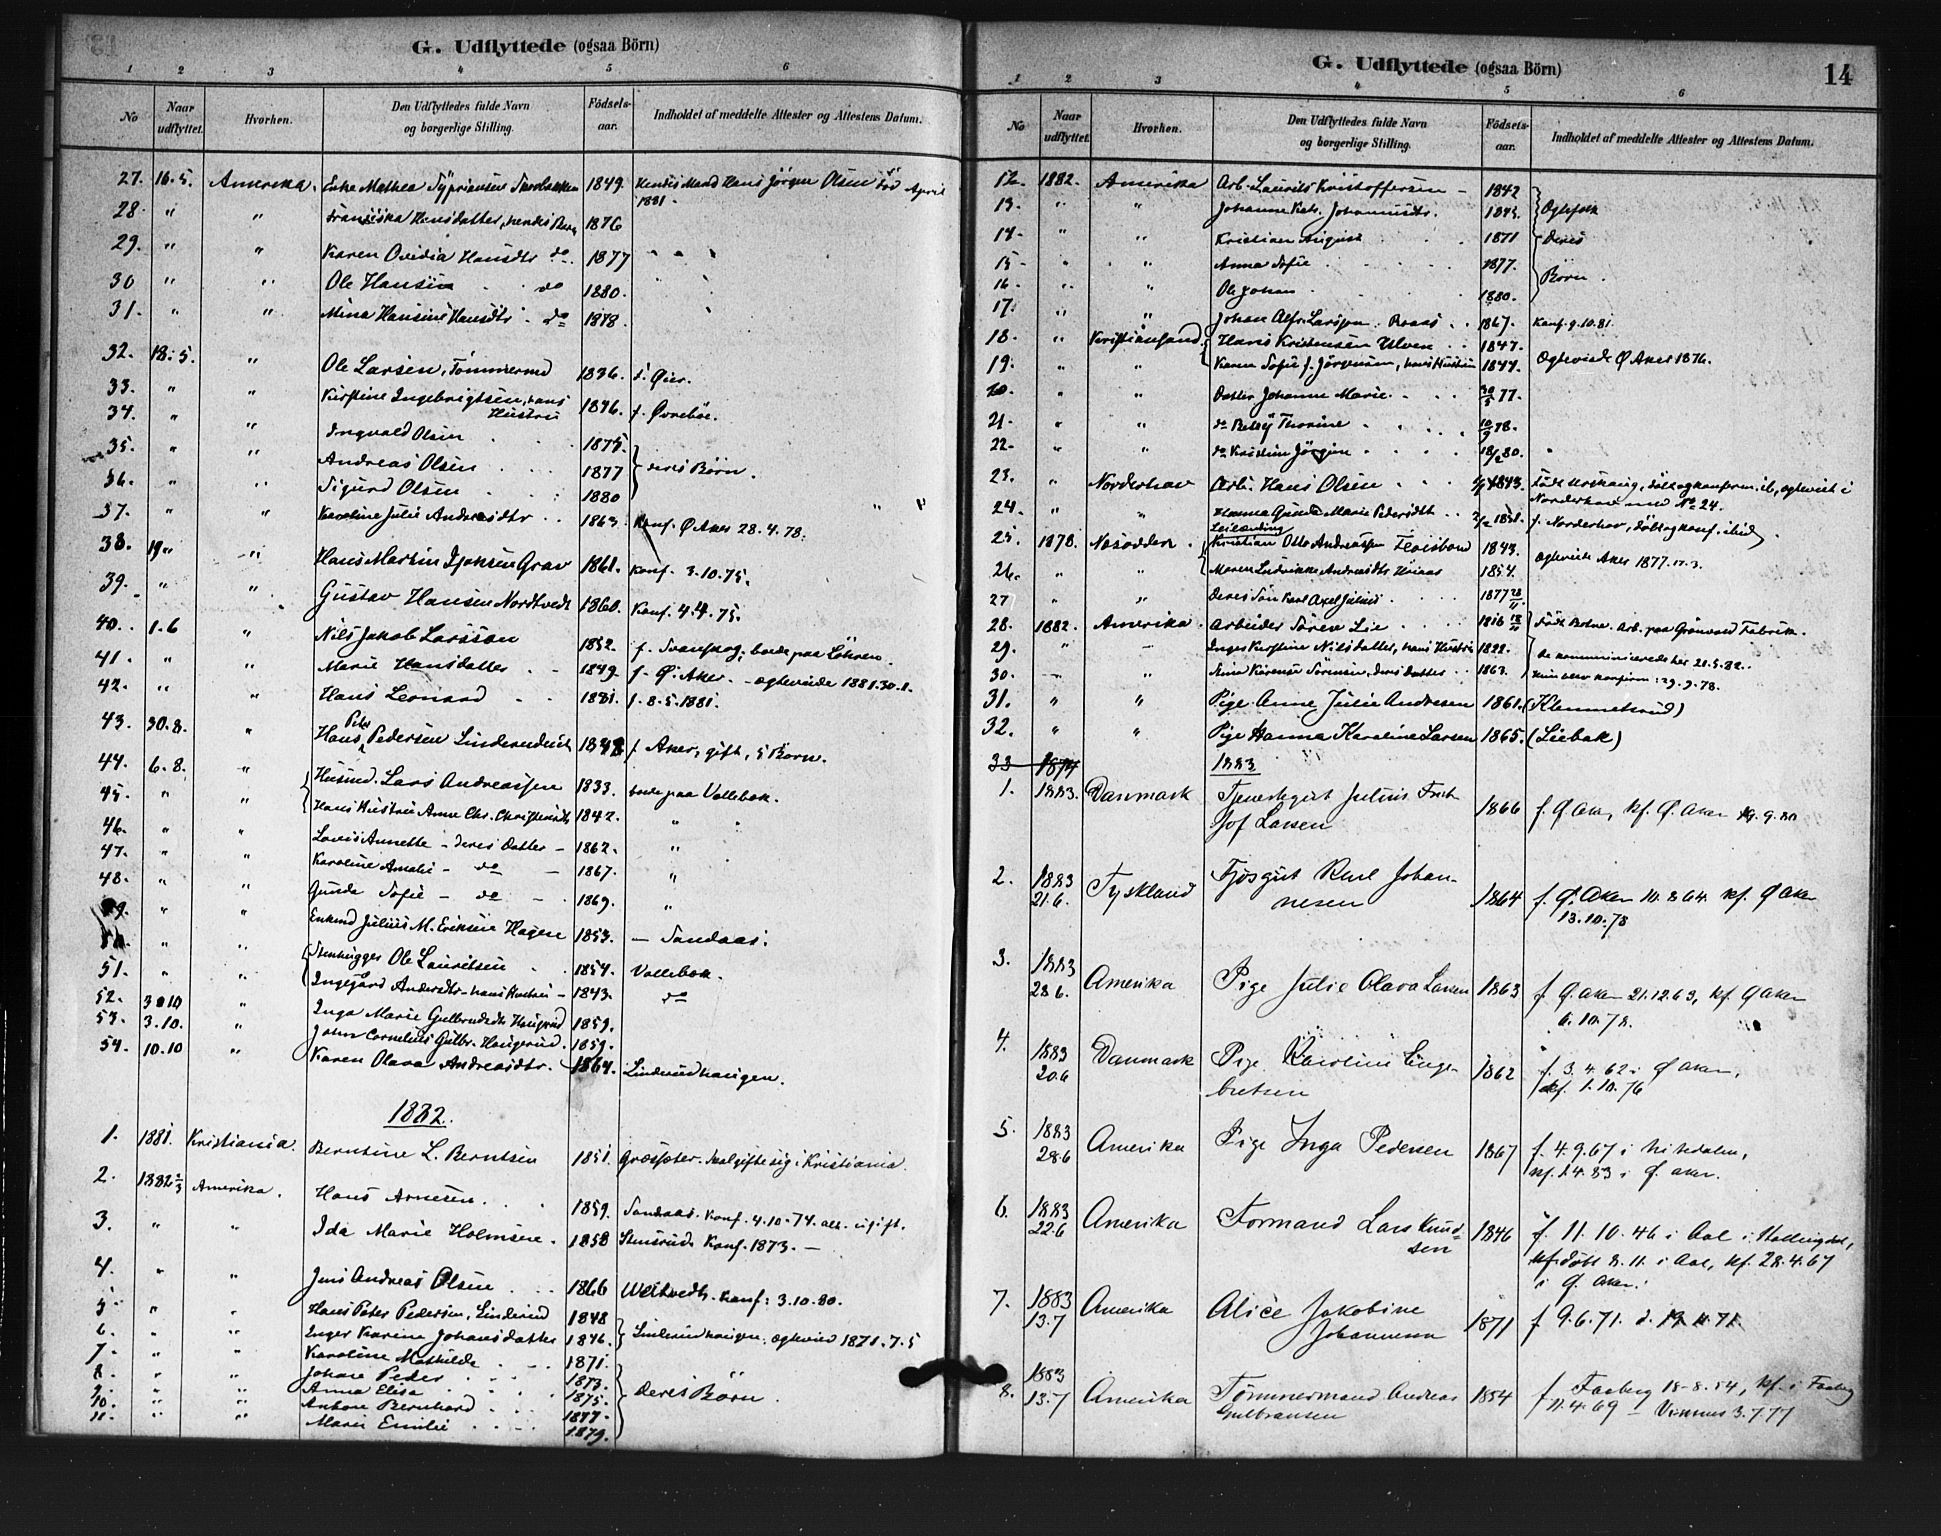 G. Udflyttede (ogsaa Börn)
1 2 3 4 5 6
No Naar udflyttet. Hvorhen. Den Udflyttedes fulde Navn og borgerlige Stilling. Födsels-aar. Indholdet af meddelte Attester og Attestens Datum.
27. 16.5. Amerika. Enke Mathea 1849. Hendes Mand Hans Jörgen Olsen April
1881
28. " " Hansdatter, hendes Barn 1876
29. " " Karen Ovidia Hansdtr do 1877
30 " " Ole Hansen do 1880.
31. " " Mina Hansine Hansdtr do 1878.
32. 18.5. " Ole Larsen, Tömmermd 1836. f. Øier.
33. " " Kirstine Ingebrigtsen, hans Hustru 1846. f.
34. " " Ingvald Olsen 1875.
35. " " Andreas Olsen 1877 deres Börn.
36. " " Sigurd Olsen 1880
37. " " Karoline Julie Andreasdtr 1863. Konf. Ø Aker 28.4.78.
38. 19 " " Hans Martin Grav 1861. Konf. 3.10.75.
39. " " Gustav Hansen Nordtvedt 1860. Konf. 4.4.75.
40. 1.6 " Nils Jakob Larsson 1852. f. boede paa
41. " " Marie Hansdatter 1849. f. Ø. Aker. - ægteviede 1881.30.1.
42. " " Hans Leonard 1881. f. 8.5.1881.
43. 30.8. " Hans Peter Pedersen Linderud 1848 f. Aker, gift, 5 Børn.
44. 6.8. " Husmd. Lars Andreassen 1833. boede paa Vollebæk.
45. " " Hans Hustru Anne Chr. 1842. "
46. " " Lovise Annette - deres Datter - 1862. "
47. " " Karoline Amalie - do - 1867. "
48. " " Gunda Sofie - do - 1869. "
49. " " Enkemd Julius M. Eriksen Hagen 1853. - Sandaas.
50. " " Stenhugger Ole Lauritsen 1854. Vollebæk.
51. " " Ingeborg Andersdtr - hans Hustru - 1843. do
52. 3.10 " Inga Marie Gulbrandsdtr Haugerud 1859.
53. 3.10. " John Cornelius Gulbr. Haugerud. 1859.
54. 10.10 " Karen Olava Andreasdtr. 1864. Linderudhaugen.
1882.
1. 1881. Kristiania. Berntine L. Berntsen 1851. skal gifte sig i Kristiania.
2. 1882 Amerika. Hans Arnesen. 1859. Sandaas. Konf. 4.10.74. ugift.
3. " " Ida Marie Holmsen. 1858 Stensrud. Konf. 1873. -
4. " " Jens Andreas Olsen 1866 Konf: 3.10.80.
5 " " Hans Peter Pedersen, Linderud 1848
6. " " Inger Karine Johansdatter 1846. Linderudhaugen. ægteviet 1871.7.5
7. " " Karoline Mathilde 1871.
8. " " Johan Peder 1873.
9. " " Anna Elisa 1875. deres Börn.
10. " " Anton Bernhard 1877.
11. " " Marie Emilie 1879.
G. Udflyttede (ogsaa Börn) 14
1 2 3 4 5 6
No Naar udflyttet. Hvorhen. Den Udflyttedes fulde Navn og borgerlige Stilling. Födsels-aar. Indholdet af meddelte Attester og Attestens Datum.
12. 1882. Amerika Arb. Laurits Kristoffersen - 1842
13. " " Johanne Kath. Johannesdtr. 1843. Ægtefolk
14. " " Kristian August 1871 deres
15 " " Anna Sofie 1877.
16. " " Ole Johan 1880. Börn.
17. " " Johan Alfr. Larssen 1867. Konf. 9.10.81.
18. " Kristiansand. Hans Kristensen Ulven 1847.
19. " " Karen Sofie f. Jörgensen, hans Hustru 1844. Ægteviede Ø Aker 1876.
20. " " Datter Johanne Marie 30/5 77.
21. " " do Betsy Thorine 10/9 78.
22. " " do Kristine Jörgine 18/2 80.
23. " Norderhov Arb. Hans Olsen 1843. Född Urskoug, döbt og konfirm. ib, ægteviet i
Norderhov med No 24.
24. " " Hanna Gunda Marie Pedersdtr 1851. f. Norderhov, döbt og konf. ibid.
25. 1878. Næsodden. Leilænding Kristian Otto Andreassen 1843.
ægteviede Aker 1877.
26. " " Maren Ludvikke Andreasdtr 1854.
27 " " Deres Sön Karl Axel Julius 1877 28/11.
28. 1882. Amerika. Arbeider Sören Lie 1816 Född Arb. paa Grönvold Fabrik.
29. " - Inger Kirstine Nilsdatter, hans Hustru 1822. De kommunicerede her 21.5.82.
30. - " Sörensen, deres datter 1863. hun blev konfirm: 29.9.78.
31. " " Pige Anne Julie Andresen 1861. (Klemmetsrud)
32. " " Pige Hanna Karoline Larsen 1865. (Liebak)
33 1874 1883
1. 1883. Danmark Tjenestegut Julius Frit
jof Larsen 1866 f. Ø Aker, kf. Ø. Aker 19.9.80
2. 1883
21.6. Tyskland Fjøsgut Karl Johan-
nesen 1864 f. Ø. Aker 10.8 64. kf. Ø Aker
13.10.78
3. 1883
28.6. Amerika Pige Julie Olava Larsen 1863 f. Ø Aker 21.12.63, kf. Ø Aker
6.10.78.
4. 1883
20.6 Danmark Pige Karoline Enge-
bretsen 1862 f. 3.4.62 i Ø Aker,
kf. 1.10.76
5. 1883
28.6 Amerika Pige Inga Pedersen 1867 f. 4.9.67 i Nitedalen,
kf. 1.4.83 i Ø. Aker.
6. 1883
22.6 Amerika Formand Lars Knud-
sen 1846 f. 11.10.46 i Aal i Hallingdal,
döbt 8.11. i Aal, kf. 28.4.67
i Ø. Aker.
7. 1883
13.7 Amerika Alice Jakobine
Johannesen 1871 f 9.6.71. d.
8. 1883
13.7 Amerika Tömmermand Andreas
Gulbransen 1854 f Faaberg 18-8.54, kf. i Faaberg
11.4.69 - 3.7.77